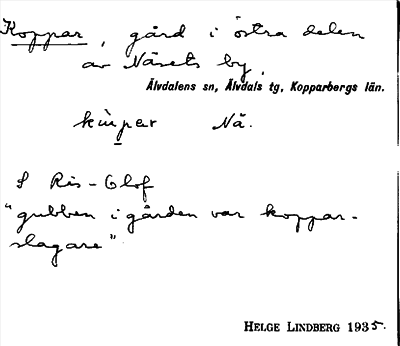 Koppar, gård i östra delen
av Näsets by,
Älvdalens sn, Älvdals tg, Kopparbergs län.
kùpar Nä.
S Ris-Olof
"gubben i gården var koppar-
slagare"
HELGE LINDBERG 1935.